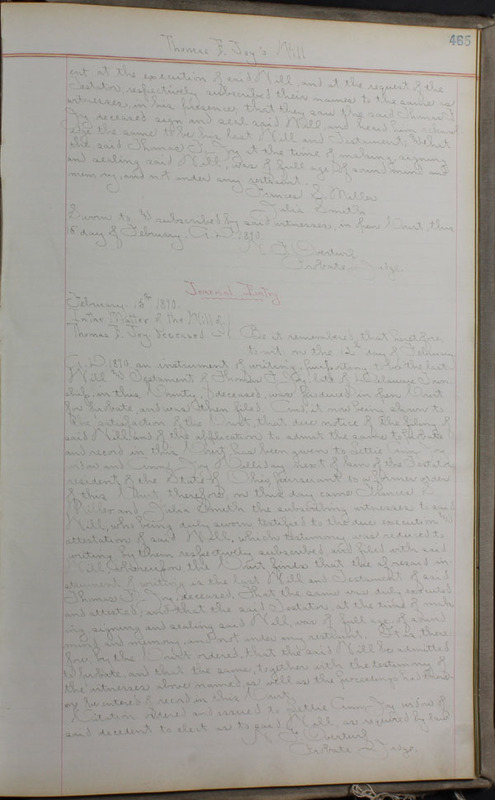 465
Thomas F. Joy's Will
ent at the execution of said Will, and at the request of the
Testator, respectively subscribed their names to the same as
witnesses, in his presence, that they saw the said Thomas F.
Joy deceased sign and seal said Will, and heard him
the same to be his last Will and Testament, that
the said Thomas F. Joy at the time of making, signing
and sealing said Will, was of full age, of sound mind and
memory, and not under any restraint.
Frances L. Miller
Julia Smith
Sworn to & subscribed by said witnesses, in open Court this
15 day of February, A.D. 1890.
Overturf
Probate Judge.
Journal Entry
February 15th 1890.
In the Matter of the Will of
Thomas F. Joy deceased Be it remembered, that heretofore,
to wit: on the 12th day of February
A.D. 1890 an instrument of writing, purporting to be the last
Will & Testament of Thomas F. Joy, late of Town
ship, in this County, deceased, was produced in open Court
for probate and was then filed. And it now being shown to
the satisfaction of the Court that due notice of the filing of
said Will and of the application to admit the same to probate
and record in this Court has been given to Lettie
widow and Joy next of kin of the Testator
resident of the State of Ohio pursuant to a former order
of this Court, therefore, on this day came Frances L.
Miller and Julia Smith the subscribing witnesses to said
Will, who being duly sworn testified to the due execution
attestation of said Will, which testimony was reduced to
writing, by them respectively subscribed and filed with said
Will. Wherefore the Court finds that the aforesaid in
strument of writing is the last Will and Testament of said
Thomas F. Joy deceased, that the same was duly executed
and attested, and that the said Testator, at the time of mak
ing, signing and sealing said Will, was of full age, of sound
mind and memory, and not under any restraint. It is there
fore by the Court ordered, that the said Will be admitted
to probate, and that the same, together with the testimony of
the witnesses above named, as well as the proceedings had there
on be entered of record in this Court.
Citation ordered and issued to Lettie Joy widow of
said decedent to elect as to said Will, as required by law
Overturf
Probate Judge.